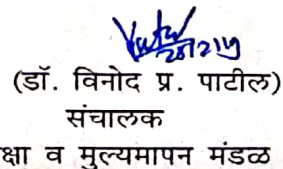 (डॉ. विनोद प्र. पाटील)
संचालक
क्षा व मुल्यमापन मंडळ